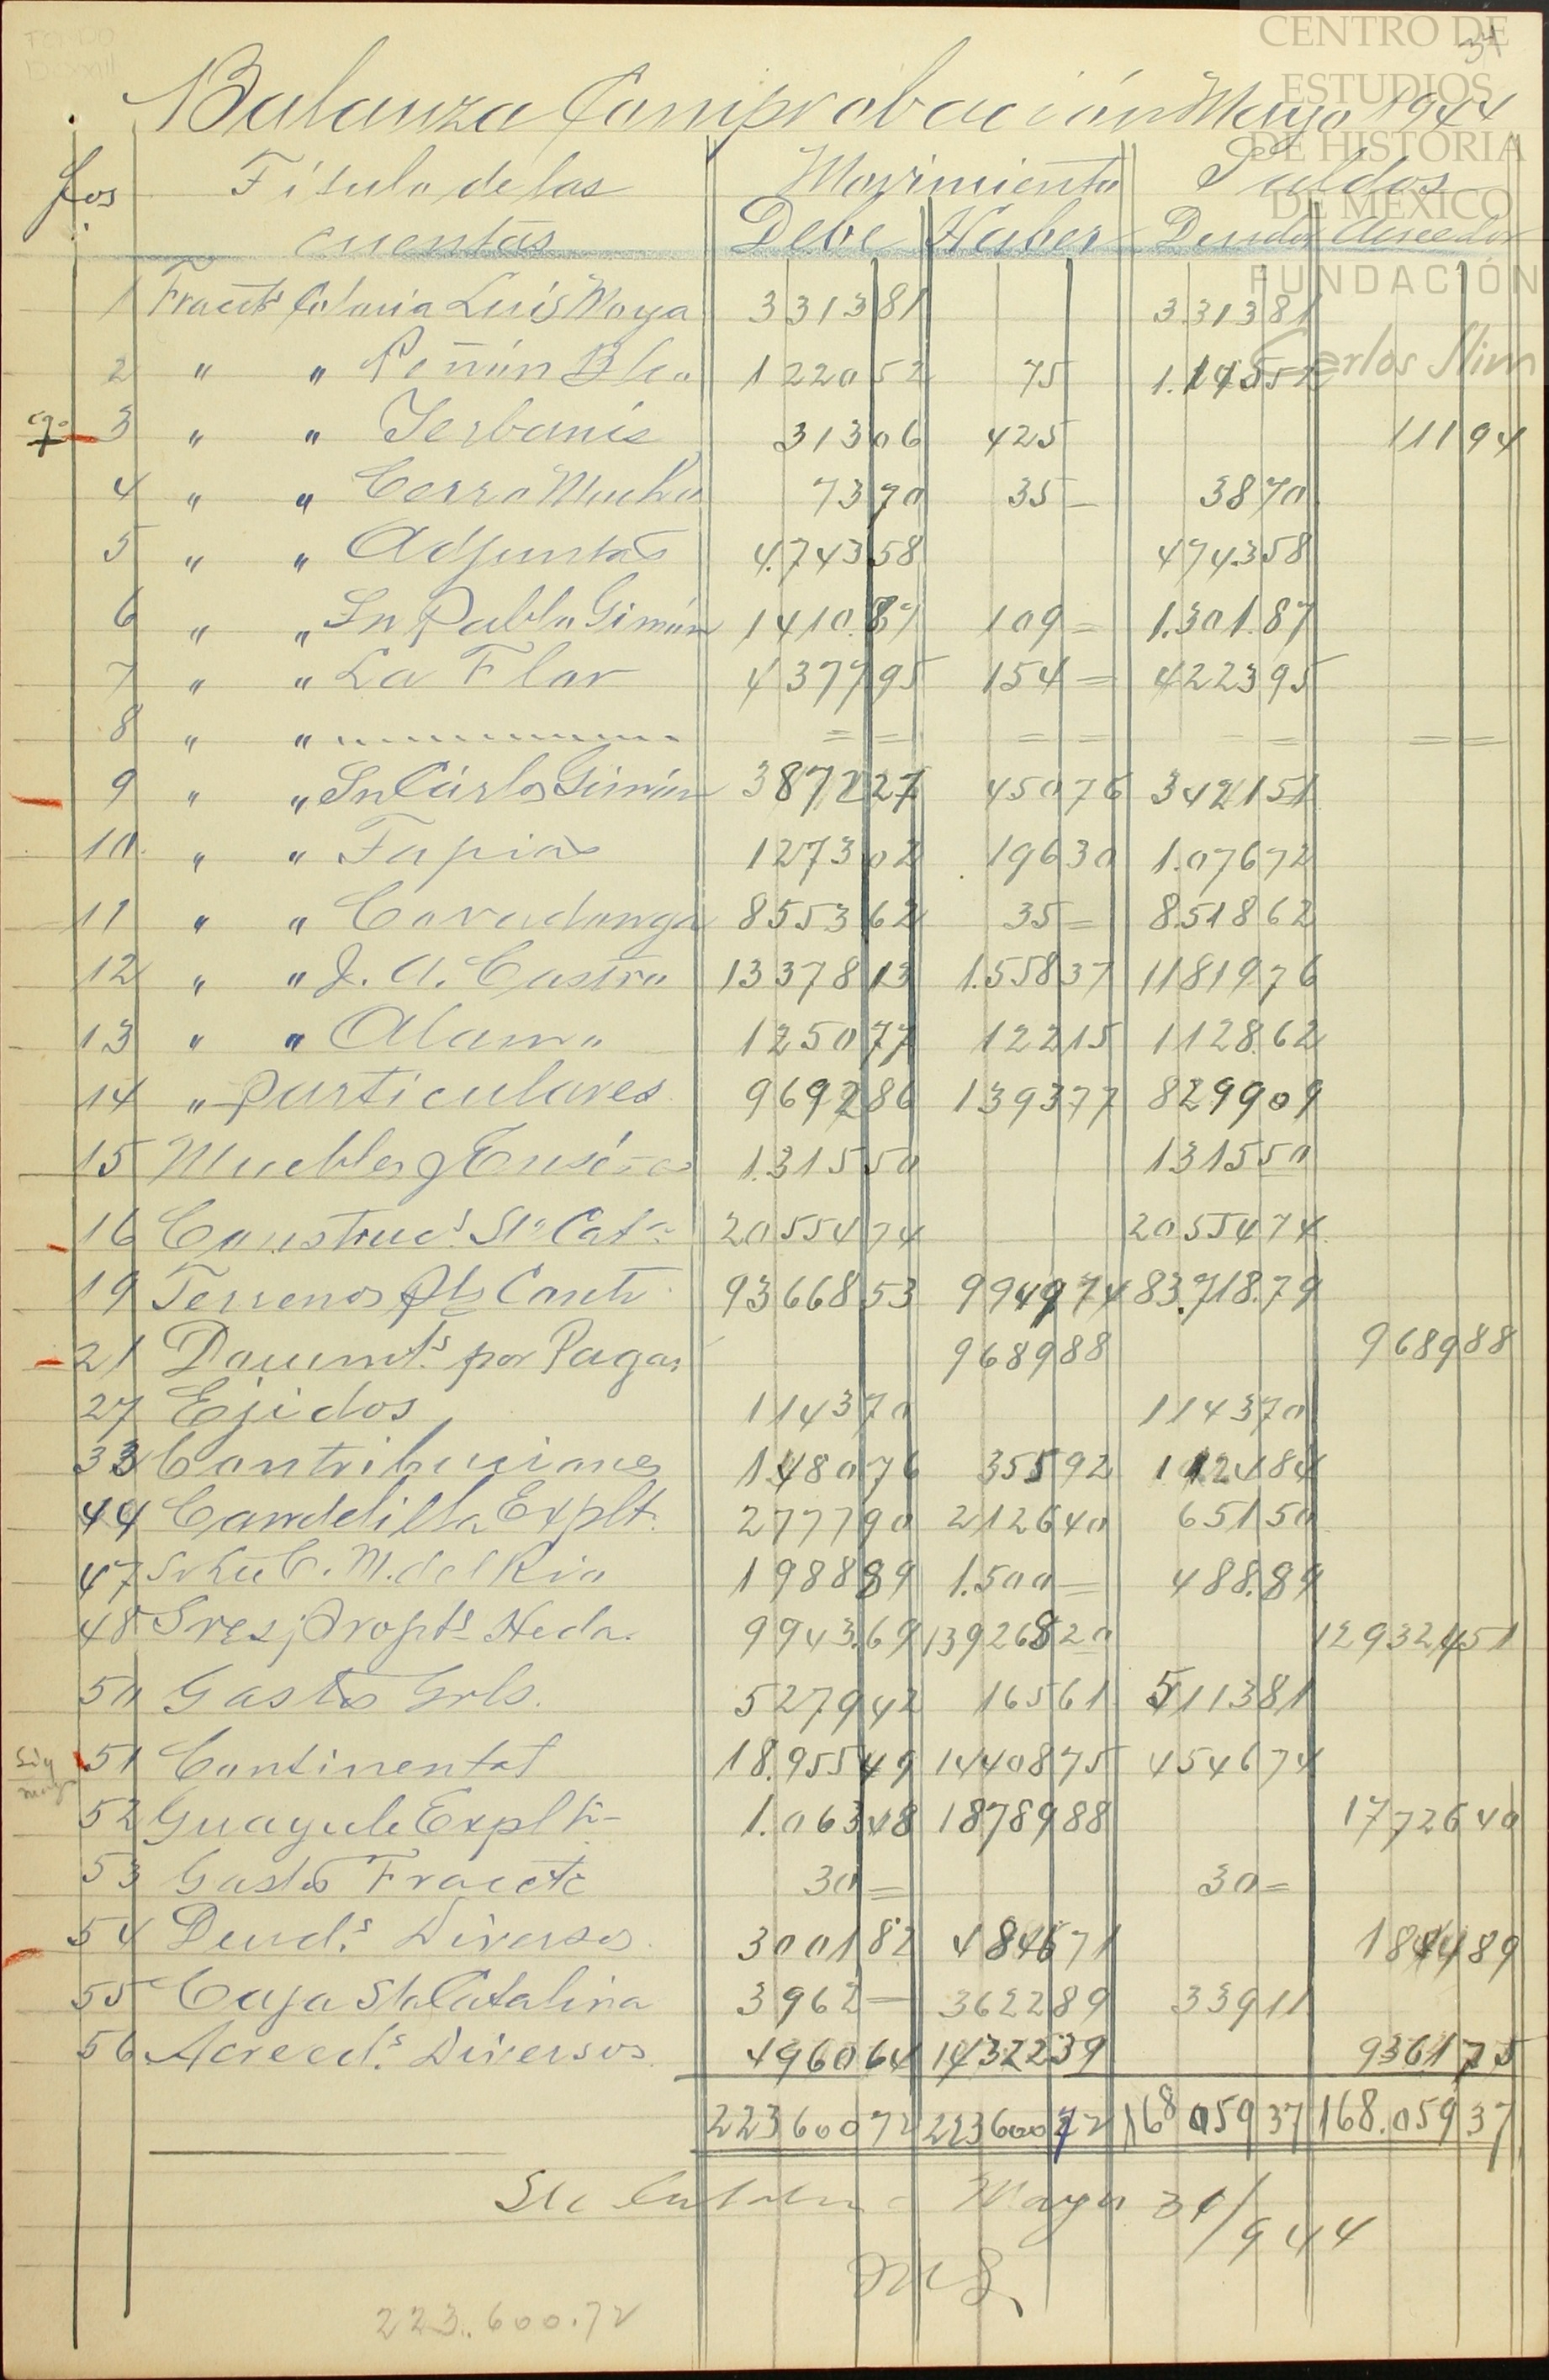 34
Balanza Comprobación Mayo 1944
fos Título de las Movimiento Saldos
cuentas Debe Haber Deudor Acreedor
1 Fraccts Colonia Luis Moya 331381 331381
2 " " Peñón Blco 122052 75 1.14552
3 " " Yerbanis 31306 425 11194
4 " " Cerro Mucho 7370 35 — 3870
5 " " Adjuntas 4.74358 474358
6 " " Sn Pablo Gimén 141087 109 = 1.301.87
7 " " La Flor 437795 154 = 422395
8 " "
9 " " Sn Cárlos Gimén 387227 45076 342151
10. " " Tapias 127302 19630 1.07672
11 " " Covadonga 855362 35 = 8.51862
12 " " J. A. Castro 1337813 1.55837 1181976
13 " " Alamo 125077 12215 1128.62
14 " Particulares 969286 139377 829909
15 Muebles y Enséres 1.31550 131550
16 Construcs. Sta Cata 2055474 2055474
19 Terrenos Contr 9366853 994974 83.718.79
21 Documts. por Pagar 968988 968988
27 Ejidos 114370 114370
33 Contribuciones 148076 35592 112484
44 Candelilla Explt. 277790 212640 65150
47 C. M. del Rio 198889 1.500 — 488.89
48 Sres. Propts Hcda. 9943.69 13926820 12932451
50 Gastos Grls. 527942 16561 511381
51 Continental 18.95549 1440875 454674
52 Guayule Explt 1.06348 1878988 1772640
53 Gastos Fraccts 30 = 30 =
54 Deuds. Diversos 300182 484671 184489
55 Caja Sta Catalina 3962 — 362289 33911
56 Acreeds. Diversos 496064 1432239 936175
22360072 22360072 16805937 168.05937
Sta Catalina Mayo 31/944
223.600.72
CENTRO DE
ESTUDIOS
DE HISTORIA
DE MÉXICO
FUNDACIÓN
Carlos Slim